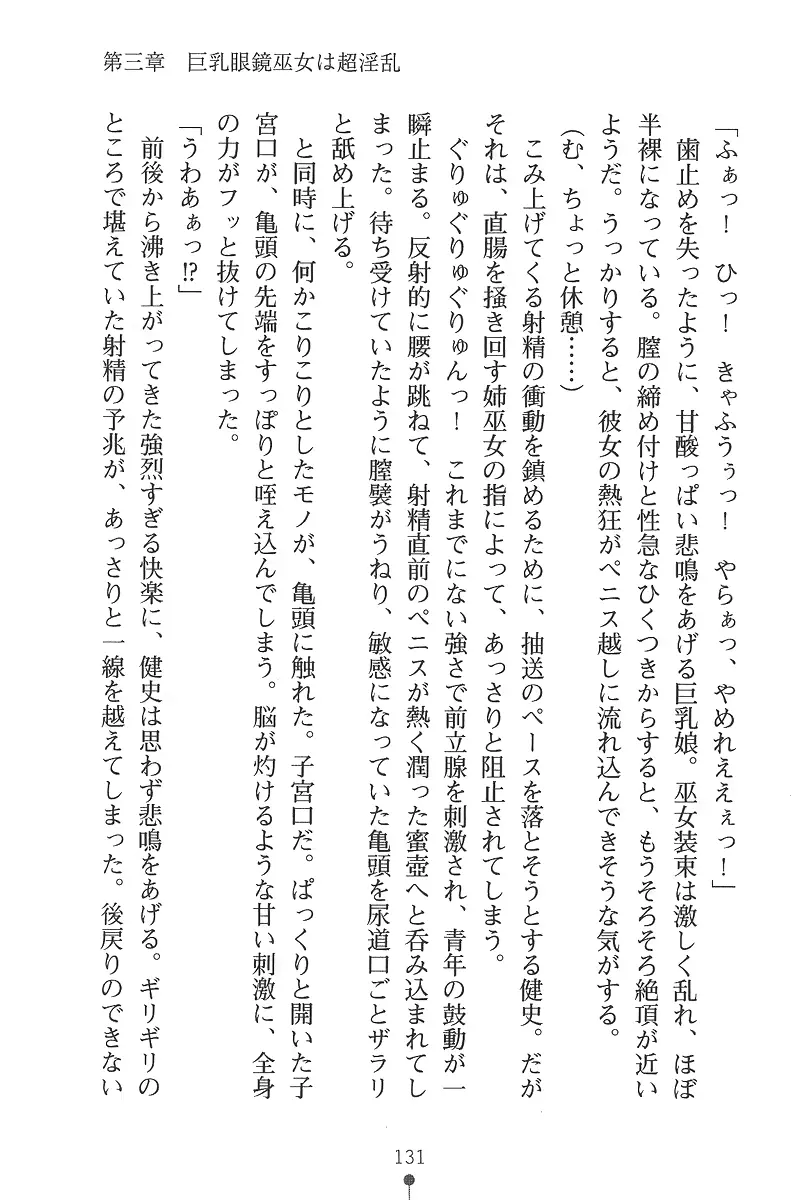 第三章　巨乳眼鏡巫女は超淫乱
「ふぁっ！　ひっ！　きゃふうぅっ！　やらぁっ、やめれええぇっ！」
　歯止めを失ったように、甘酸っぱい悲鳴をあげる巨乳娘。巫女装束は激しく乱れ、ほぼ
半裸になっている。膣の締め付けと性急なひくつきからすると、もうそろそろ絶頂が近い
ようだ。うっかりすると、彼女の熱狂がペニス越しに流れ込んできそうな気がする。
（む、ちょっと休憩……）
　こみ上げてくる射精の衝動を鎮めるために、抽送のペースを落とそうとする健史。だが
それは、直腸を掻き回す姉巫女の指によって、あっさりと阻止されてしまう。
　ぐりゅぐりゅぐりゅんっ！　これまでにない強さで前立腺を刺激され、青年の鼓動が一
瞬止まる。反射的に腰が跳ねて、射精直前のペニスが熱く潤った蜜壺へと呑み込まれてし
まった。待ち受けていたように膣襞がうねり、敏感になっていた亀頭を尿道口ごとザラリ
と舐め上げる。
　と同時に、何かこりこりとしたモノが、亀頭に触れた。子宮口だ。ぱっくりと開いた子
宮口が、亀頭の先端をすっぽりと咥え込んでしまう。脳が灼けるような甘い刺激に、全身
の力がフッと抜けてしまった。
「うわあぁっ!?」
　前後から沸き上がってきた強烈すぎる快楽に、健史は思わず悲鳴をあげる。ギリギリの
ところで堪えていた射精の予兆が、あっさりと一線を越えてしまった。後戻りのできない
131